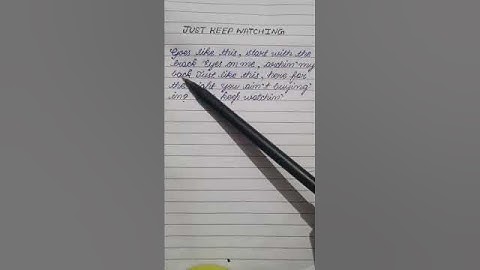 JUST KEEP WATCHING
Goes like this, start with the
back Eyes on me, archin' my
back Just like this, here for
the night You ain't buying
in? keep watchin'